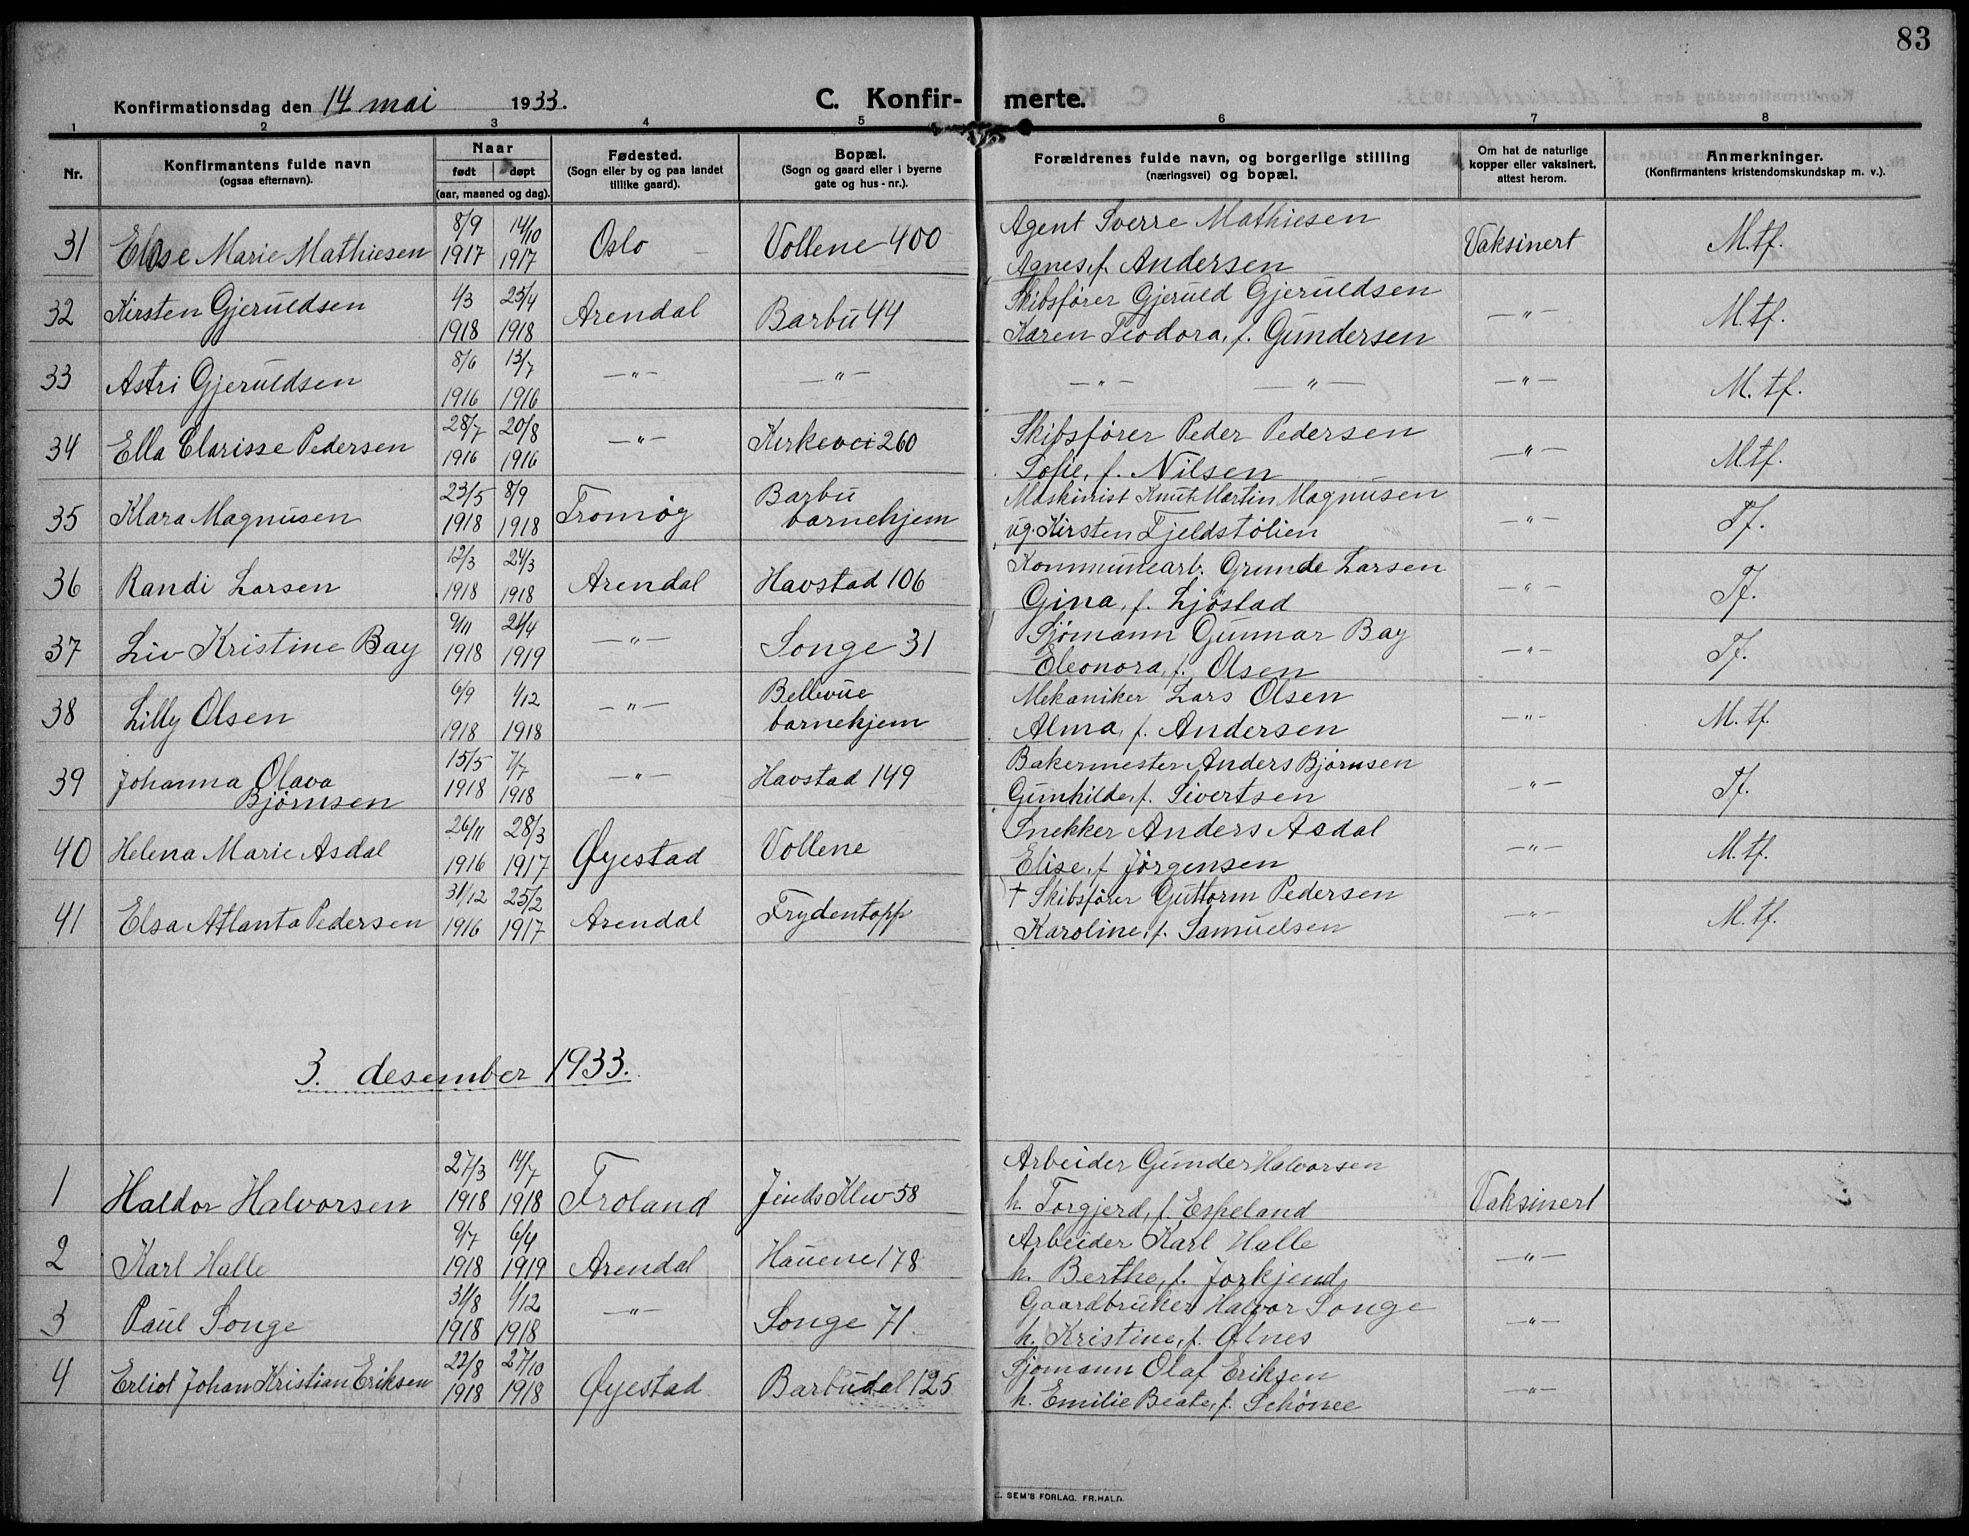 83
Konfirmationsdag den 14 mai 1933.
C. Konfir- merte.
1 2 3 4 5 6 7 8
Nr. Konfirmantens fulde navn (ogsaa efternavn). Naar født døpt (aar, maaned og dag). Fødested. (Sogn eller by og paa landet tillike gaard). Bopæl. (Sogn og gaard eller i byerne gate og hus-nr.). Forældrenes fulde navn, og borgerlige stilling (næringsvei) og bopæl. Om hat de naturlige kopper eller vaksinert, attest herom. Anmerkninger. (Konfirmantens kristendomskundskap m. v.).
31 Marie Mathiesen 8/9 1917 14/10 1917 Oslo Vollene 400 Agent Sverre Mathiesen Vaksinert M.tf.
Agnes, f. Andersen
32 Kirsten Gjeruldsen 1/3 1918 25/4 1918 Arendal Barbu 44 Skibsfører Gjeruld Gjeruldsen —"— M.tf.
Karen Teodora, f. Gundersen
33 Astri Gjeruldsen 8/6 1916 13/7 1916 —"— —"— —"— —"— —"— M.tf.
34 Ella Clarisse Pedersen 28/7 1916 20/8 1916 —"— Kirkevei 260 Skibsfører Peder Pedersen —"— M.tf.
Sofie, f. Nilsen
35 Klara Magnusen 23/5 1918 8/9 1918 Tromøy Barbu barnehjem Maskinist Knut Martin Magnusen —"— Tf.
ug. Kirsten Fjeldstølien
36 Randi Larsen 12/3 1918 24/3 1918 Arendal Havstad 106 Kommunearb. Grunde Larsen —"— Tf.
Gina, f. Ljøstad
37 Liv Kristine Bay 9/11 1918 21/4 1919 —"— Songe 31 Sjømann Gunnar Bay —"— Tf.
Eleonora, f. Olsen
38 Lilly Olsen 6/9 1918 1/12 1918 —"— Bellevue barnehjem Mekaniker Lars Olsen —"— M.tf.
Alma, f. Andersen
39 Johanna Olava Bjørnsen 15/5 1918 7/7 1918 —"— Havstad 149 Bakermester Anders Bjørnsen —"— Tf.
Gunhilde, f. Sivertsen
40 Helena Marie Asdal 26/11 1916 28/3 1917 Øyestad Vollene Snekker Anders Asdal —"— M.tf.
Elise, f. Jørgensen
41 Elsa Atlanta Pedersen 31/12 1916 25/2 1917 Arendal Frydentopp † Skibsfører Guttorm Pedersen —"— M.tf.
Karoline, f. Samuelsen
3. desember 1933.
1 Haldor Halvorsen 27/3 1918 14/7 1918 Froland 58 Arbeider Gunder Halvorsen Vaksinert
h. Torgjerd, f. Espeland
2 Karl Halle 9/7 1918 6/4 1919 Arendal Hauene 178 Arbeider Karl Halle —"—
h. Berthe, f. Jorkjend
3 Paul Songe 31/8 1918 1/12 1918 —"— Songe 71. Gaardbruker Halvor Songe —"—
h. Kristine, f. Alnes
4 Johan Kristian Eriksen 22/8 1918 27/10 1918 Øyestad Barbudal 125 Sjømann Olaf Eriksen —"—
h. Emilie Beate, f.
SEM'S FORLAG. FR.HALD.